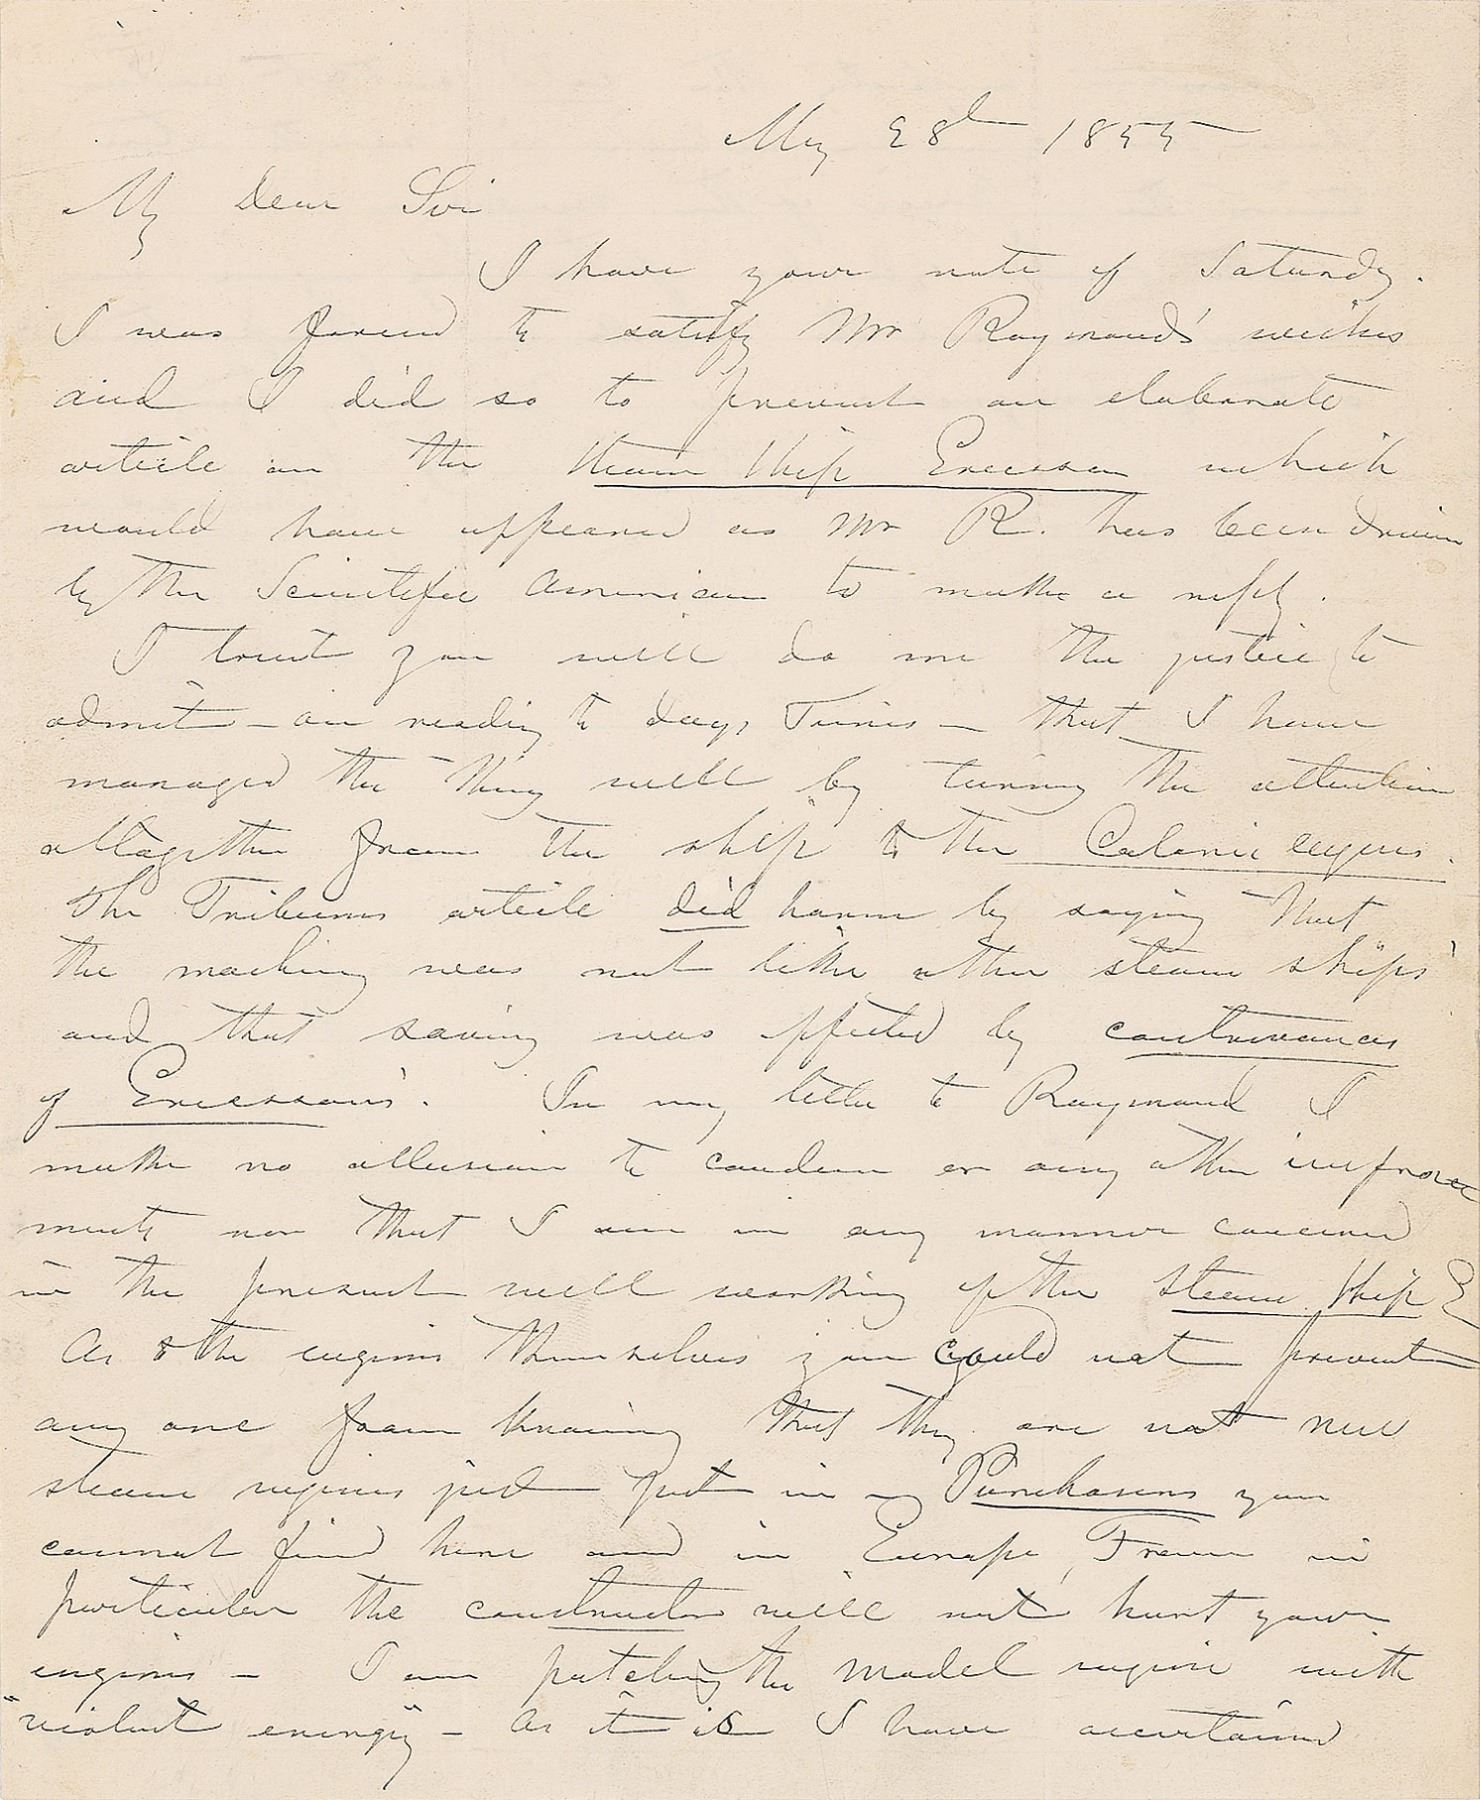 May 28th 1855
My Dear Sir
I have your note of Saturday.
I was forced to satisfy Mr Raymond's wishes
and I did so to prevent an elaborate
article on the steam ship Ericsson which
would have appeared as Mr R. has been driven
by the Scientific American to make a reply.
I trust you will do me the justice to
admit — on reading to days Times — that I have
managed the thing well by turning the attention
altogether from the ship to the Caloric engine.
The Tribunes article did harm by saying that
the machinery was not like other steam ships'
and that saving was effected by contrivances
of Ericsson's. In my letter to Raymond I
make no allusion to condenser or any other improve
ments nor that I am in any manner concerned
in the present well working of the Steam Ship E
As to the engines themselves you could not prevent
any one from knowing that they are not new
steam engines just put in — Purchasers you
cannot find here and in Europe, France in
particular the constructor will not hurt your
engines — I am patching the model engine with
"violent energy" — As it is I have ascertained